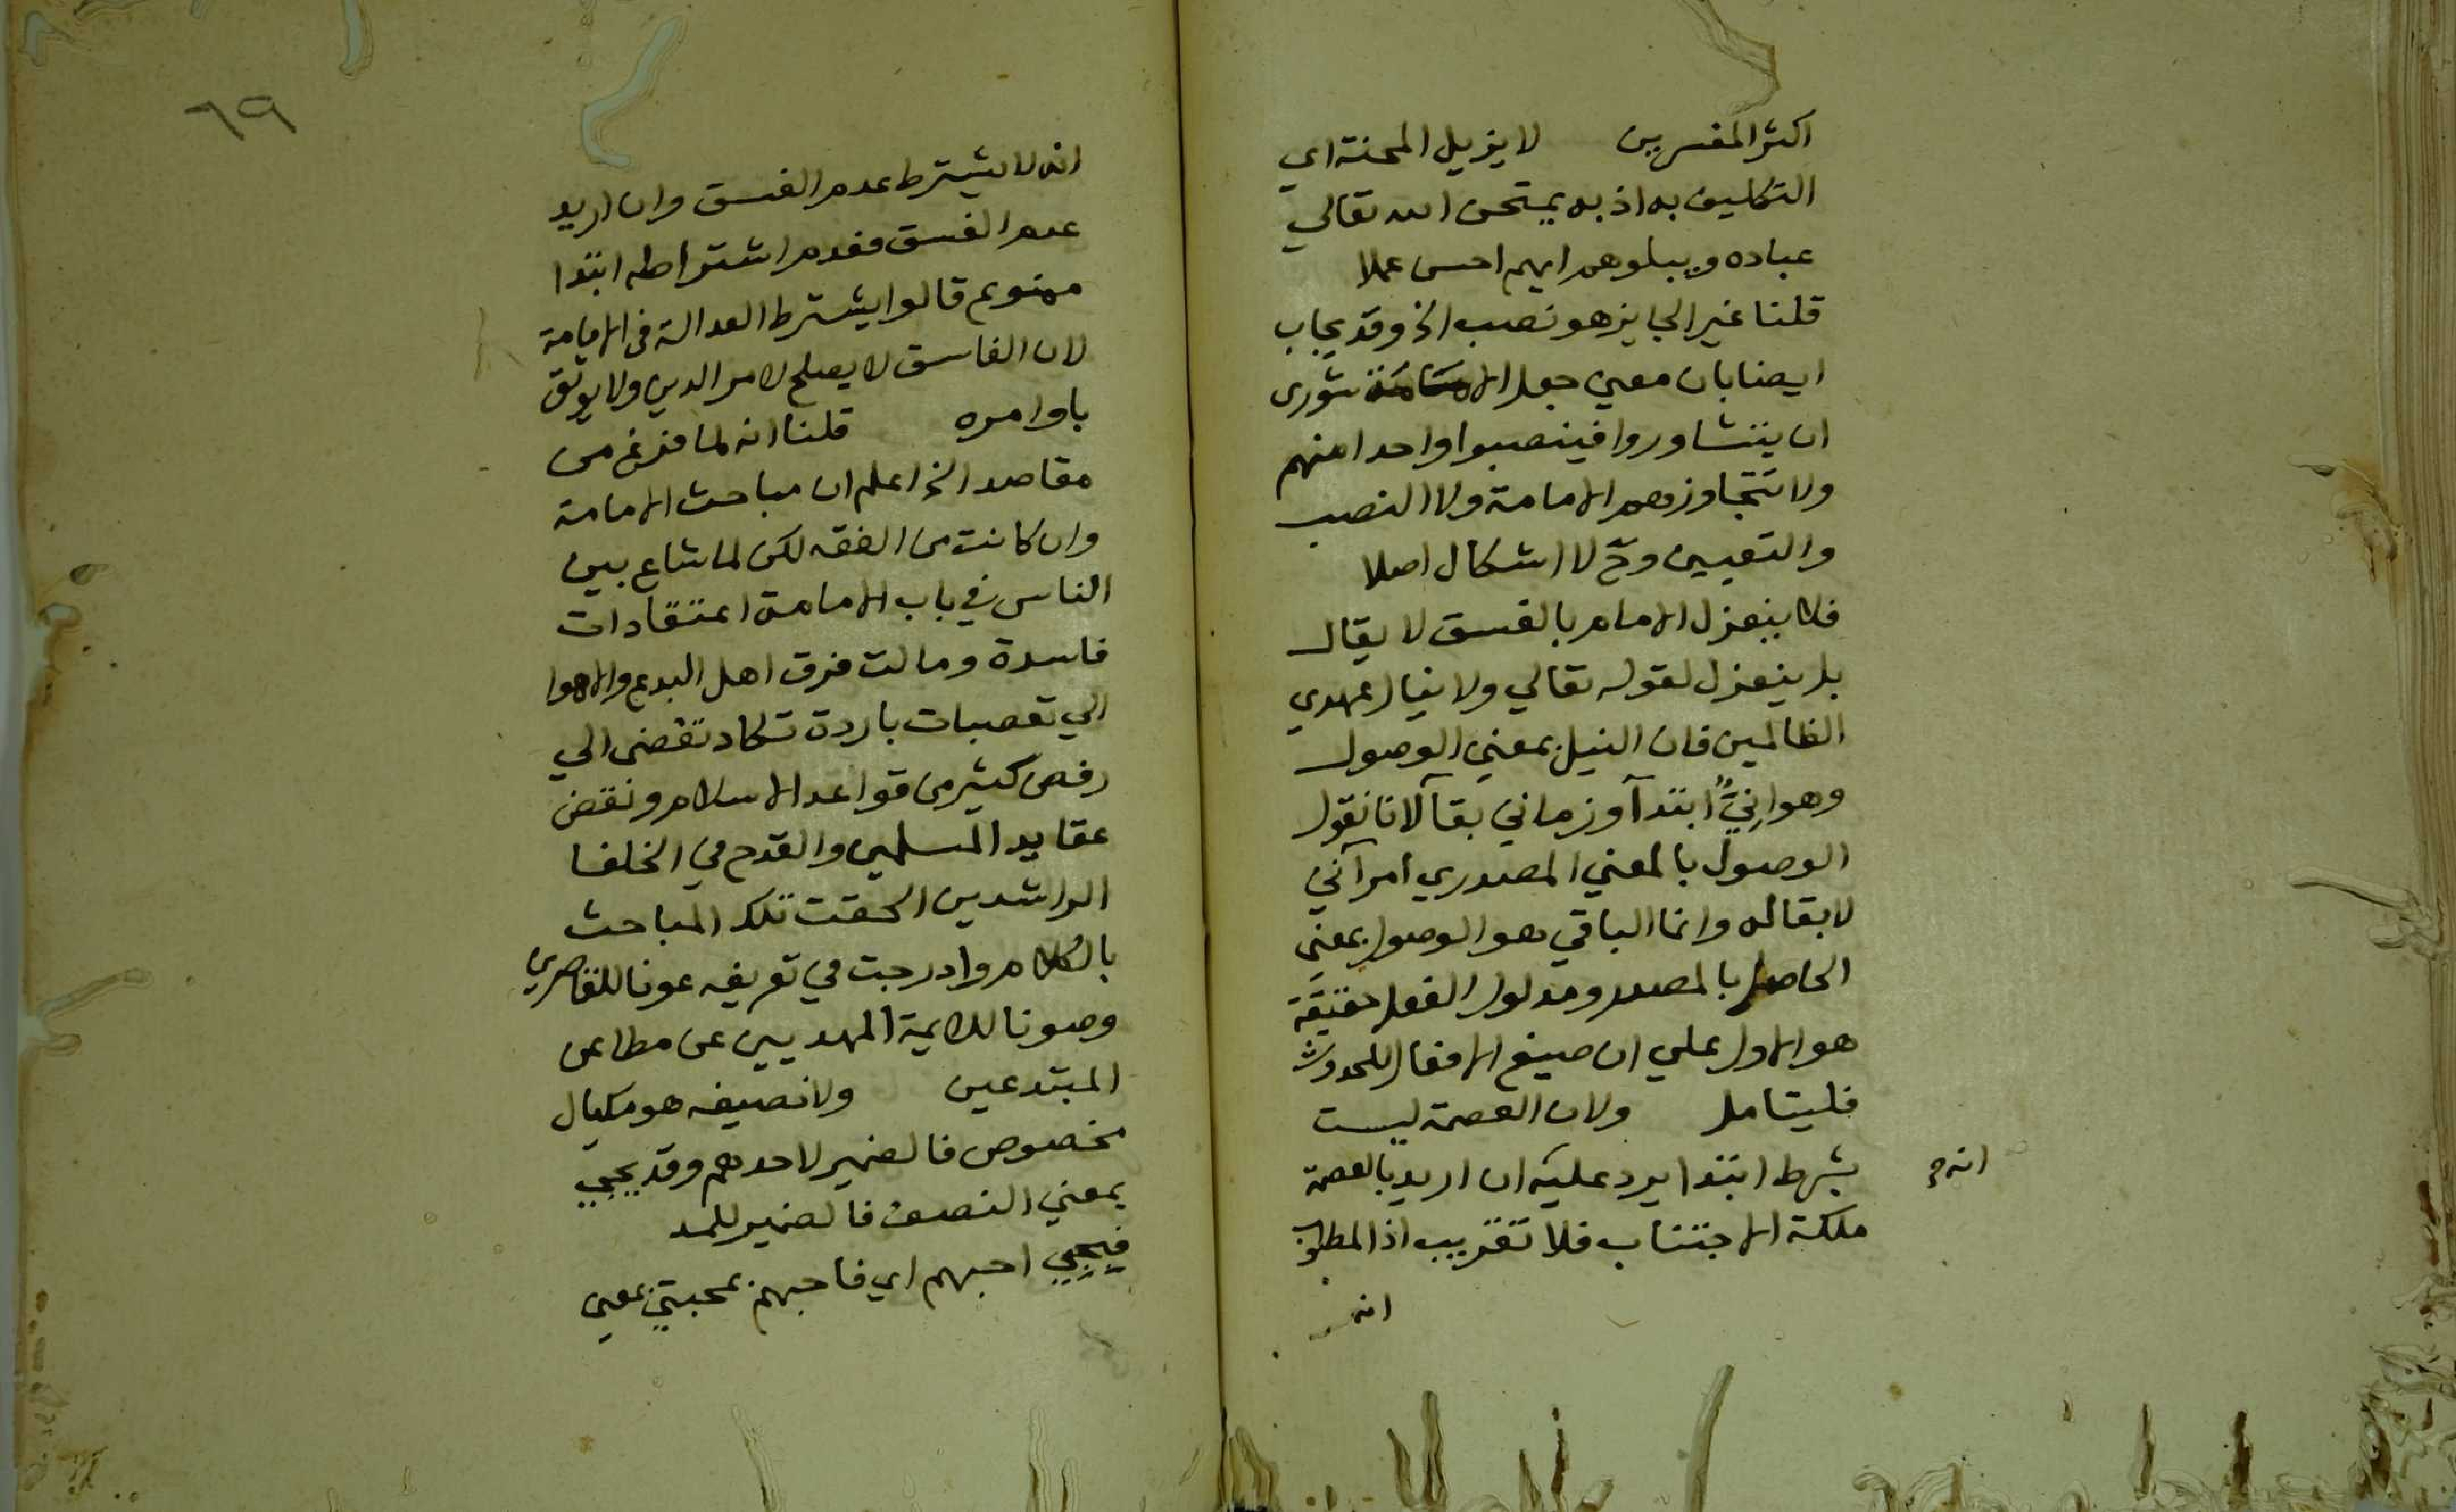 اكثر المفسرين لا يزيل المحنة اي
التكليف به اذ به يمتحن الله تعالي
عباده ويبلوهم ايهم احسن عملا
قلنا غير الجايز هو نصب الخ وقد يجاب
ايضا بان معني جعل الامامة شورى
ان يتشاوروا فينصبوا واحدا منهم
ولا تتجاوزهم الامامة ولا النصب
والتعيين وح لا اشكال اصلا
فلا ينعزل الامام بالفسق لا يقال
بل ينعزل لقوله تعالي ولا ينال عهدي
الظالمين فان النيل بمعني الوصول
وهو اني ابتدآ وزماني بقآ لانا نقول
الوصول بالمعني المصدري امر آني
لا بقا له وانما الباقي هو الوصول بمعنى
الحاصل بالمصدر ومدلول الفعل حقيقة
هو الاول علي ان صيغ الافعال للحدوث
فليتامل ولان العصمة ليست
بشرط ابتدا يرد عليه ان اريد بالعصمة
انه م
ملكة الاجتناب فلا تقريب اذ المطلوب
انه
٦٩
انه لا يشترط عدم الفسق وان اريد
عدم الفسق فعدم اشتراطه ابتدا
ممنوع قالوا يشترط العدالة في الامامة
لان الفاسق لا يصلح لامر الدين ولا يوثق
باوامره قلنا انه لما فرغ من
مقاصد الخ اعلم ان مباحث الامامة
وان كانت من الفقه لكن لما شاع بين
الناس في باب الامامة اعتقادات
فاسدة ومالت فرق اهل البدع والاهوا
الي تعصبات باردة تكاد تفضى الي
رفض كثير من قواعد الاسلام ونقض
عقايد المسلمين والقدح في الخلفا
الراشدين الحقت تلك المباحث
بالكلام وادرجت في تعريفه عونا للقاصرين
وصونا للايمة المهديين عن مطاعن
المبتدعين ولا نصيفه هو مكيال
مخصوص فالضمير لاحدهم وقد يجيي
بمعني النصف فالضمير للمد
فبحبي احبهم اي فاحبهم بمحبتي بمعني